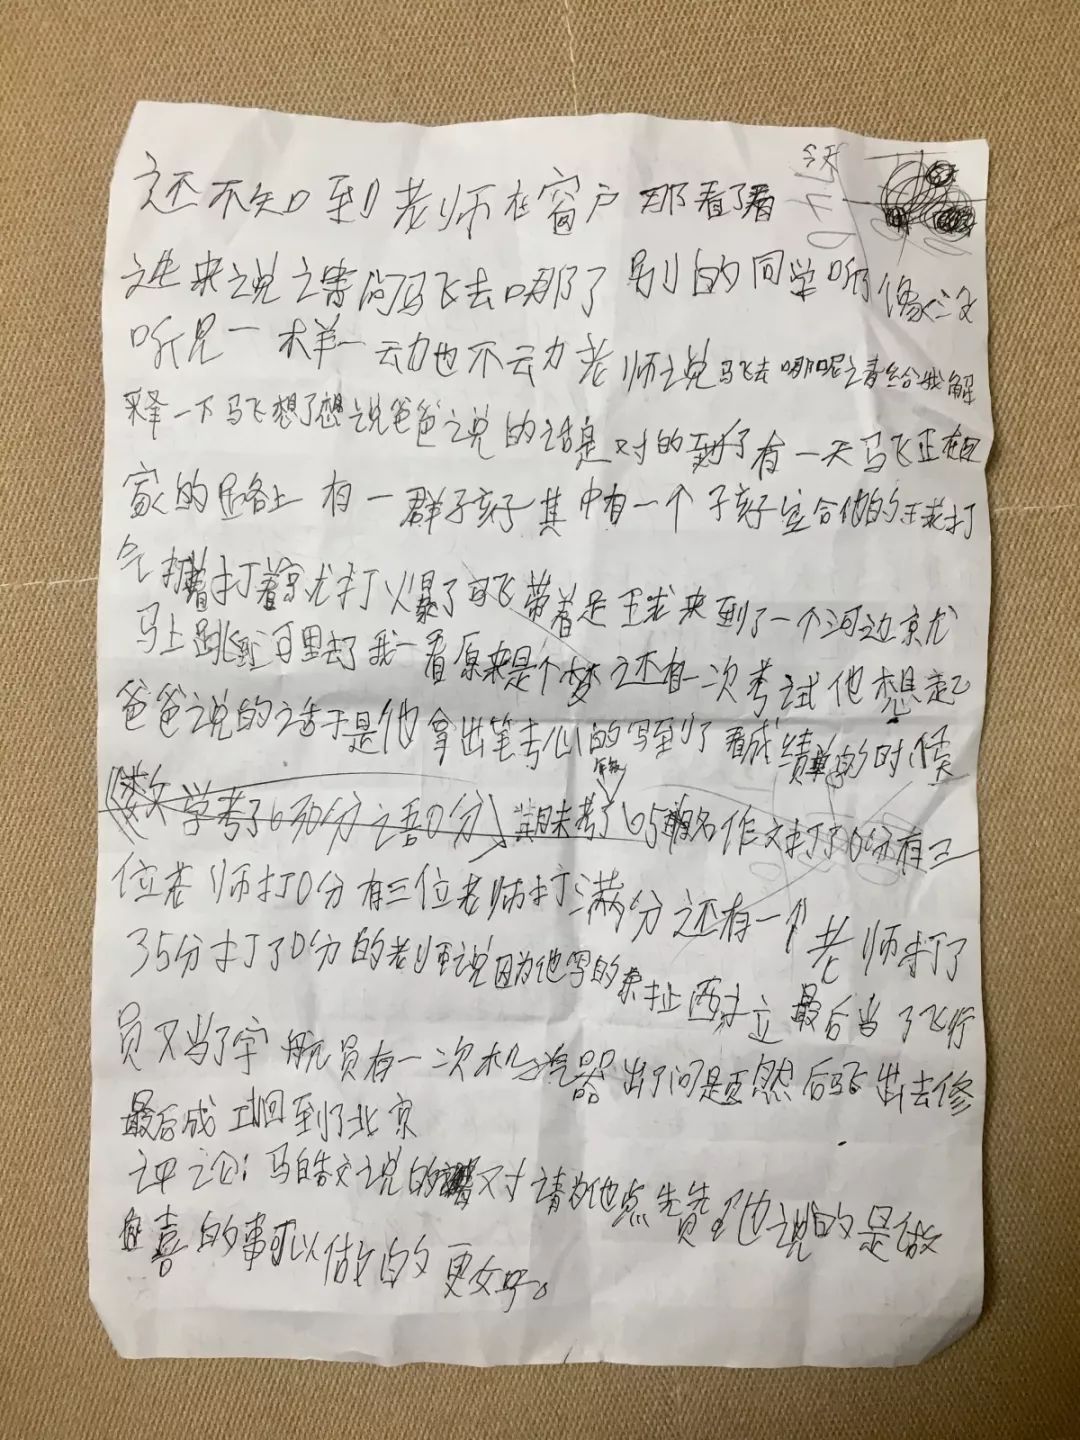 今天
还不知到老师在窗户那看了看
进来说请问马飞去哪了别的同学听像没
听见一样一动也不动老师说马飞去哪呢请给我解
释一下马飞想了想说爸爸说的话是对的到了有一天马飞正在回
家的路上有一群孩子其中有一个孩子 他的球打
气打着打着就打爆了马飞带着足球来到了一个河边就
马上跳到河里去了我一看原来是个梦还有一次考试他想起
爸爸说的话于是他拿出笔专心的写到了看成绩单的时候
数学考了630分语0分 期末考了105名作文打了0分有三
年级
位老师打0分有三位老师打满分还有一个老师打了
35分打了0分的老师说因为他写的东扯西 最后当了飞行
员又当了宇航员有一次机器出了问题然后马飞出去修
最后成功回到了北京
评论:马皓文说的 对请为他点赞!他说的是做
喜的事可以做的更好。